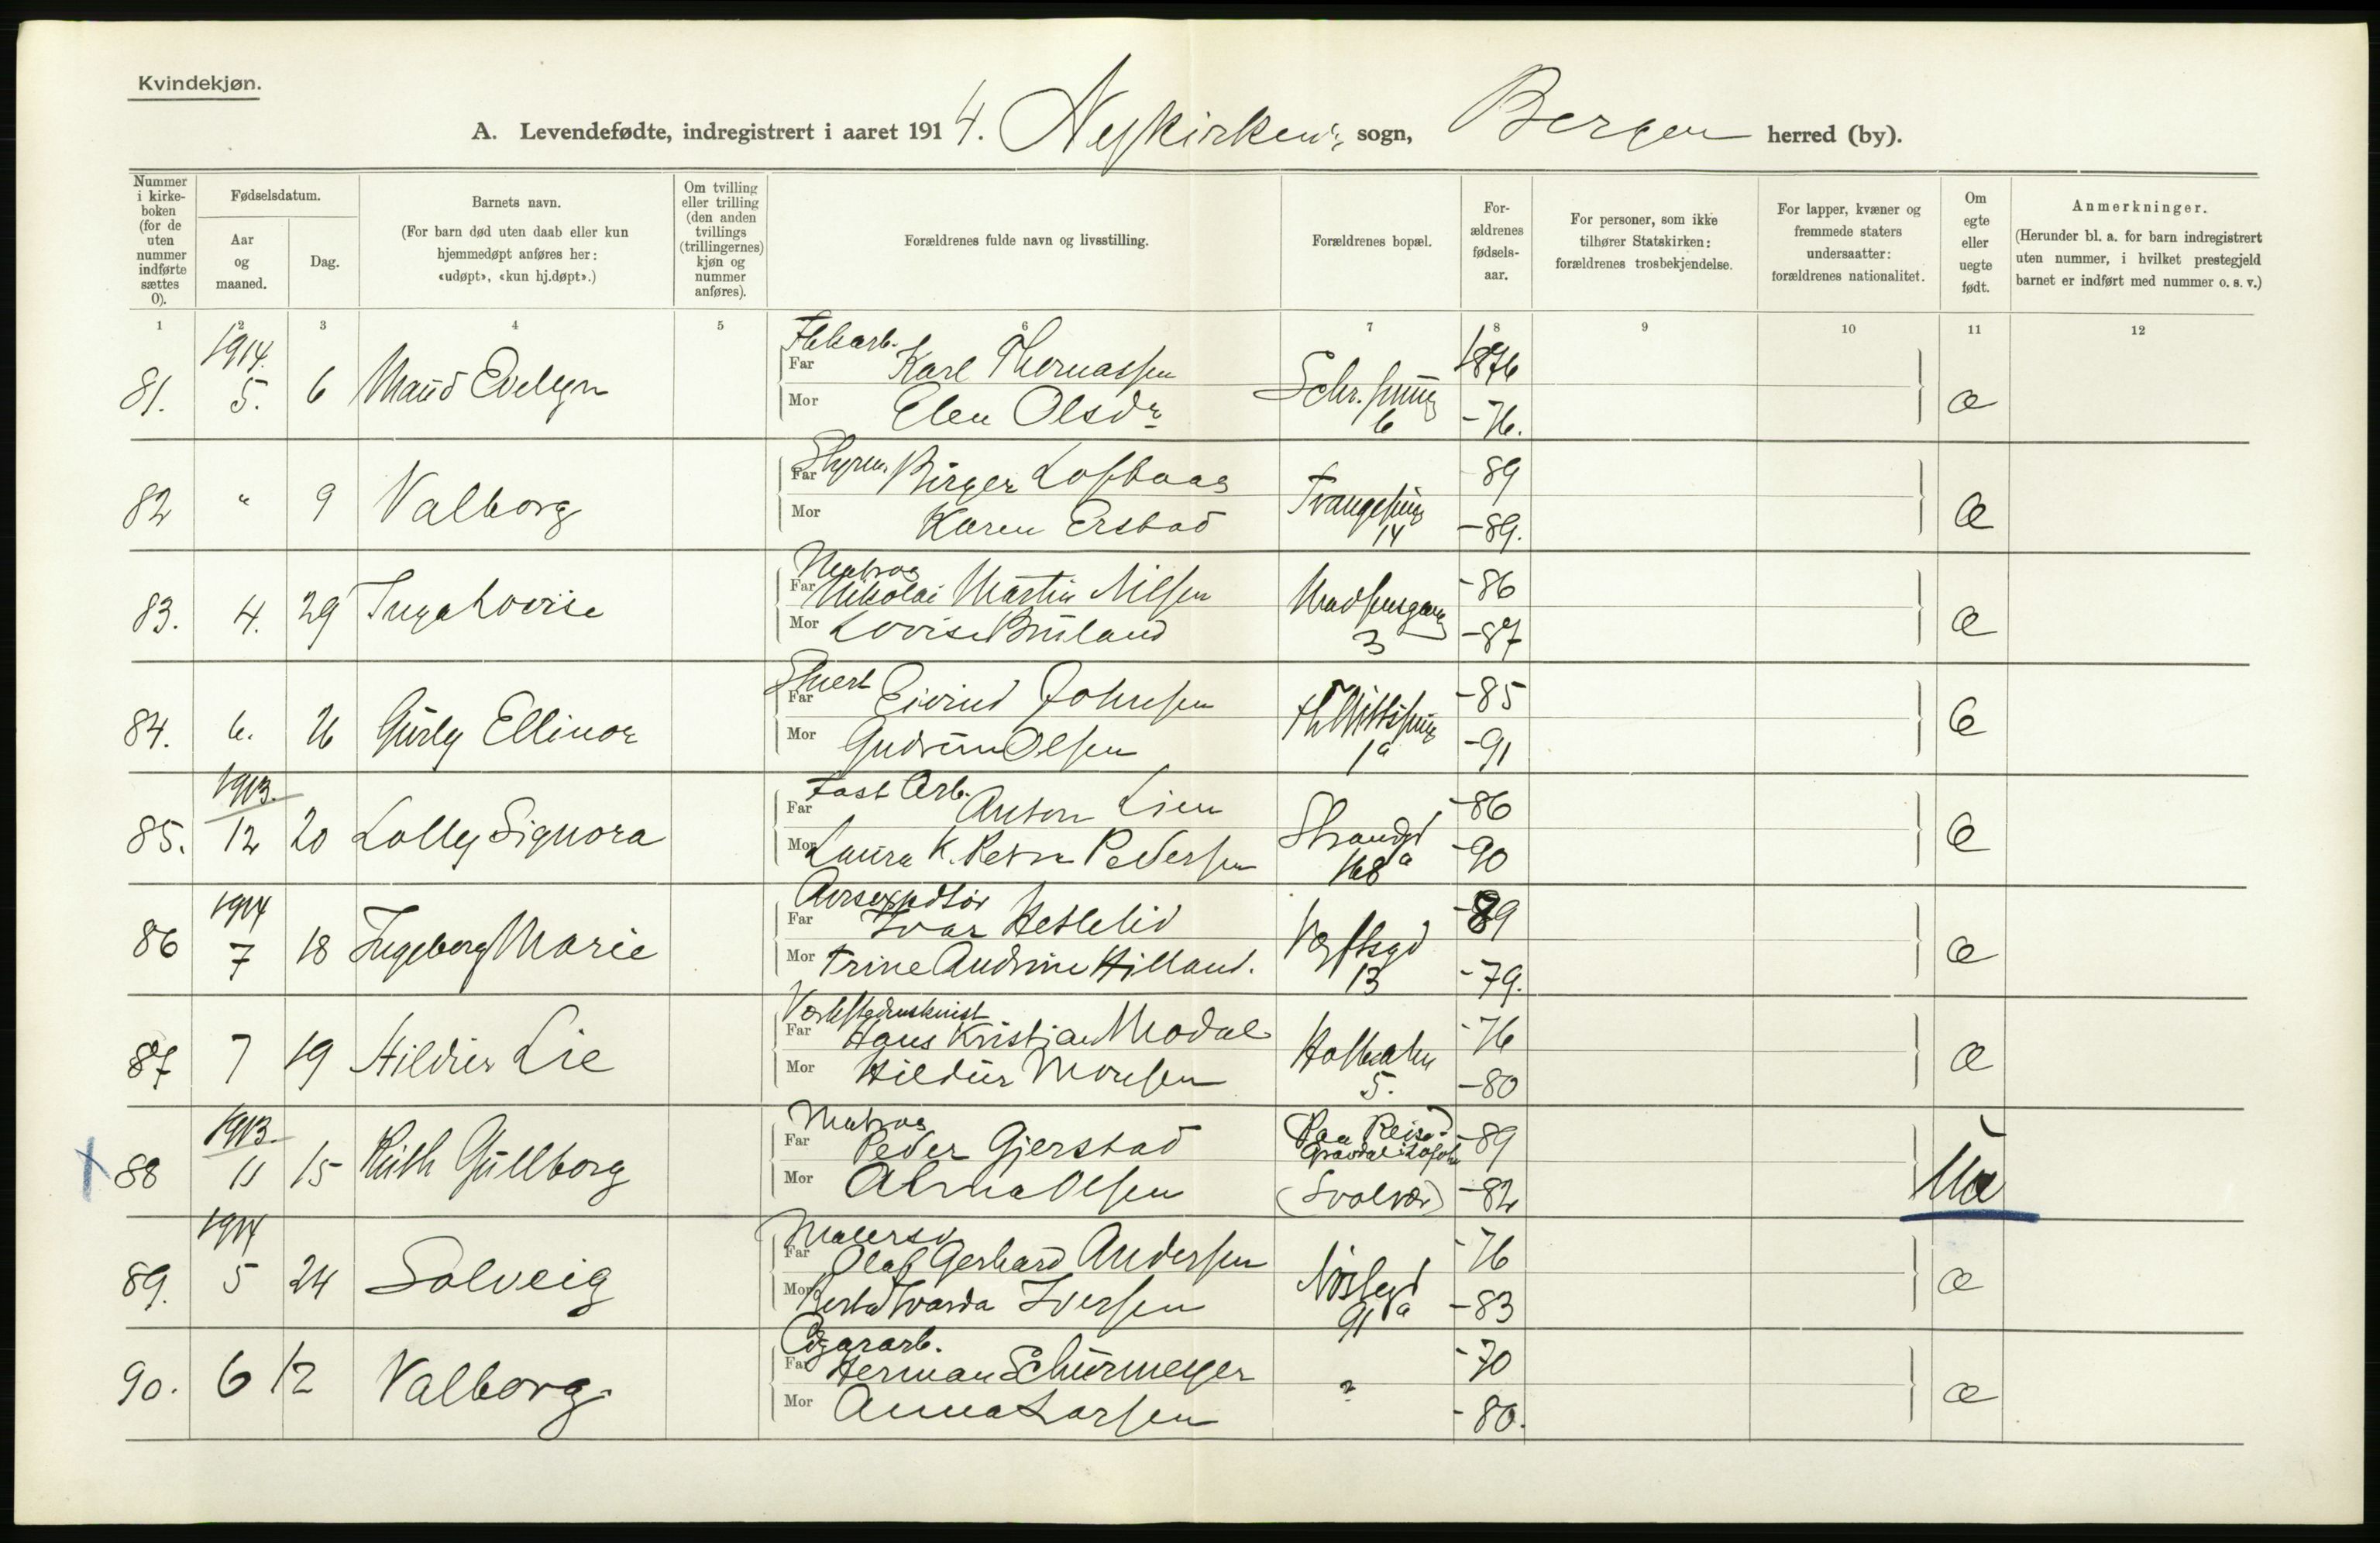 Kvindekjøn.
A. Levendefødte, indregistrert i aaret 1914. Nykirkens sogn, Bergen herred (by).
Nummer i kirke-boken (for de uten nummer indførte sættes 0).
Fødselsdatum.
Aar og maaned.
Dag.
Barnets navn.
(For barn død uten daab eller kun hjemmedøpt anføres her: «udøpt», «kun hj.døpt».)
Om tvilling eller trilling (den anden tvillings (trillingernes) kjøn og nummer anføres).
Forældrenes fulde navn og livsstilling.
Forældrenes bopæl.
For-ældrenes fødsels-aar.
For personer, som ikke tilhører Statskirken: forældrenes trosbekjendelse.
For lapper, kvæner og fremmede staters undersaatter: forældrenes nationalitet.
Om egte eller uegte født.
Anmerkninger.
(Herunder bl. a. for barn indregistrert uten nummer, i hvilket prestegjeld barnet er indført med nummer o. s. v.)
1 2 3 4 5 6 7 8 9 10 11 12
1914.
81. 5. 6 Maud Evelyn
Far Karl Thomassen 1876
Mor Elen Olsdr 6 -76. æ
82 " 9 Valborg
Styrm. Far Birger 89
Mor Karen Erstad 14 -89. Æ
83. 4. 29 Inga Lovise
Matros
Far Nikolai Martin Nilsen Madsensgang -86
Mor Lovise 3 -87 Æ
84. 6. 26 Gurly Ellinor
Far Eivind Johnsen -85
Mor Gudrun Olsen 1a -91 Æ
1913.
85. 12 20 Lolly Signora
Fast Arb.
Far Anton Lien Strandgd -86
Mor Laura K. Petra Pedersen 168a -90 Æ
1914
86 7 18 Ingeborg Marie
Far Ivar Hetlelid -89
Mor Trine Andrine Hilland. 13 -79. Æ
87 7 19 Hildur Lie
Far Hans Kristian Modal -76
Mor Hildur Monsen 5. -80 Æ
1913.
x 88 11 15 Ruth Gullborg
Matros
Far Peder Gjerstad Paa Reise -89
Mor Alma Olsen (Svolvær) -82 Uæ
1914
89. 5 24 Solveig
Malersv
Far Olaf Gerhard Andersen Nøstegd -76
Mor Berta Ivarda Iversen 91a -83 æ
90. 6 12 Valborg.
Cigararb.
Far Herman Schürmeyer -70
Mor Anna Larsen ? -80. æ